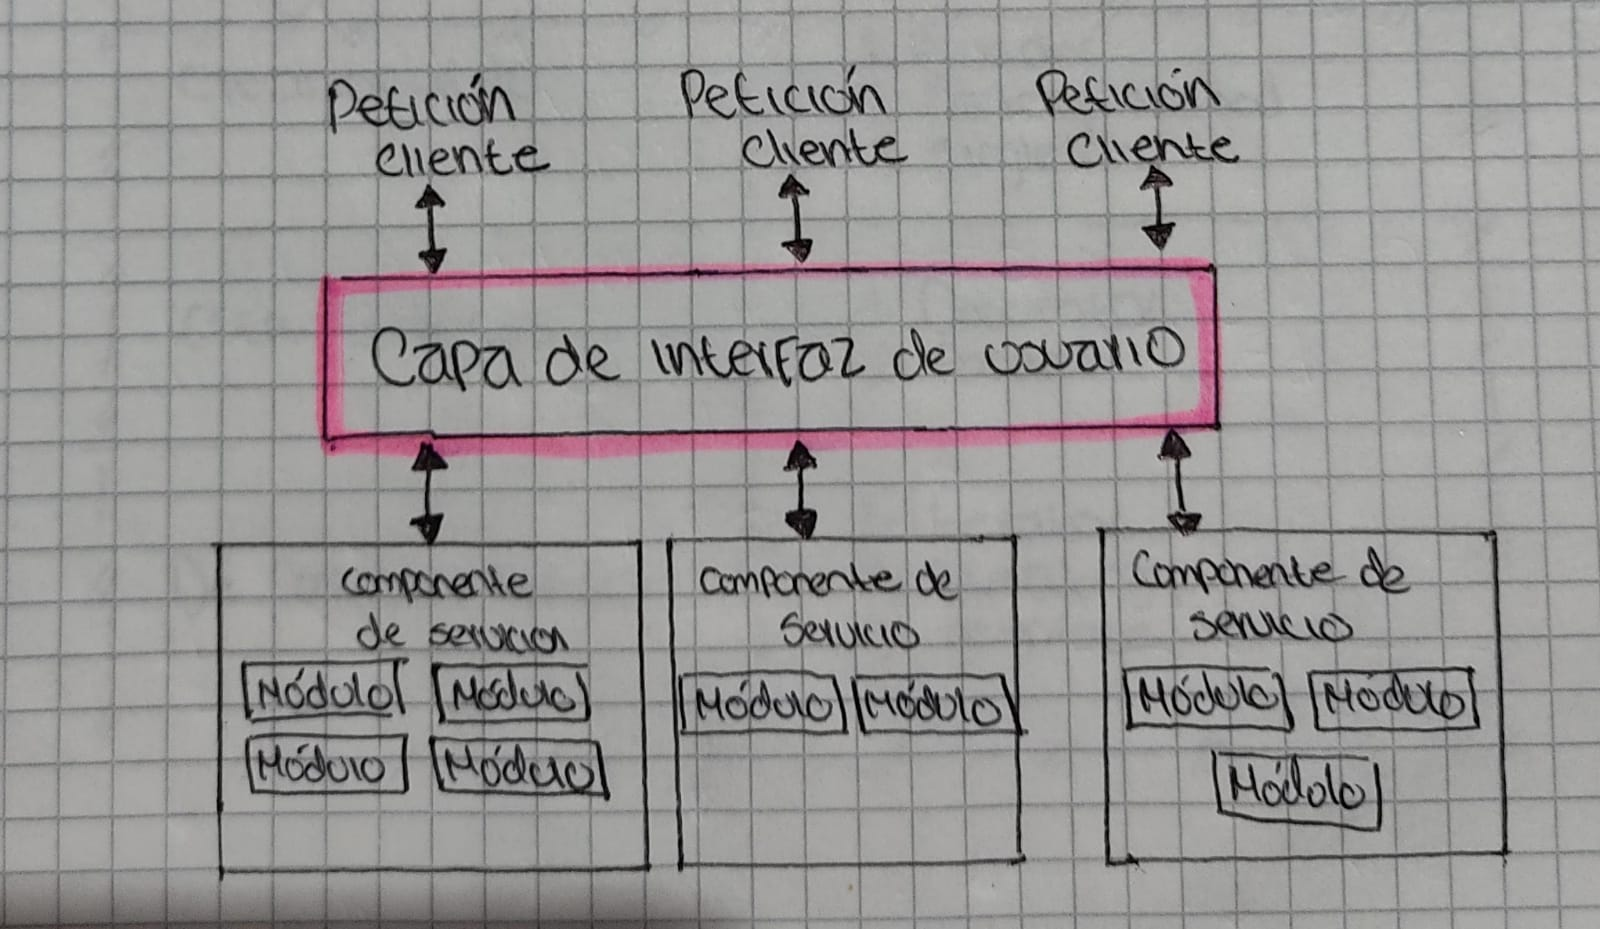 Petición
cliente
Petición
Cliente
Petición
Cliente
Capa de interfaz de usuario
componente
de servicion
Módulo Módulo
Módulo Módulo
componente de
servicio
Módulo Módulo
Componente de
servicio
Módulo Módulo
Módulo